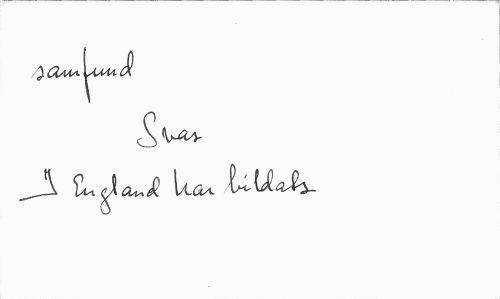 samfund
Svas
I England har bildats